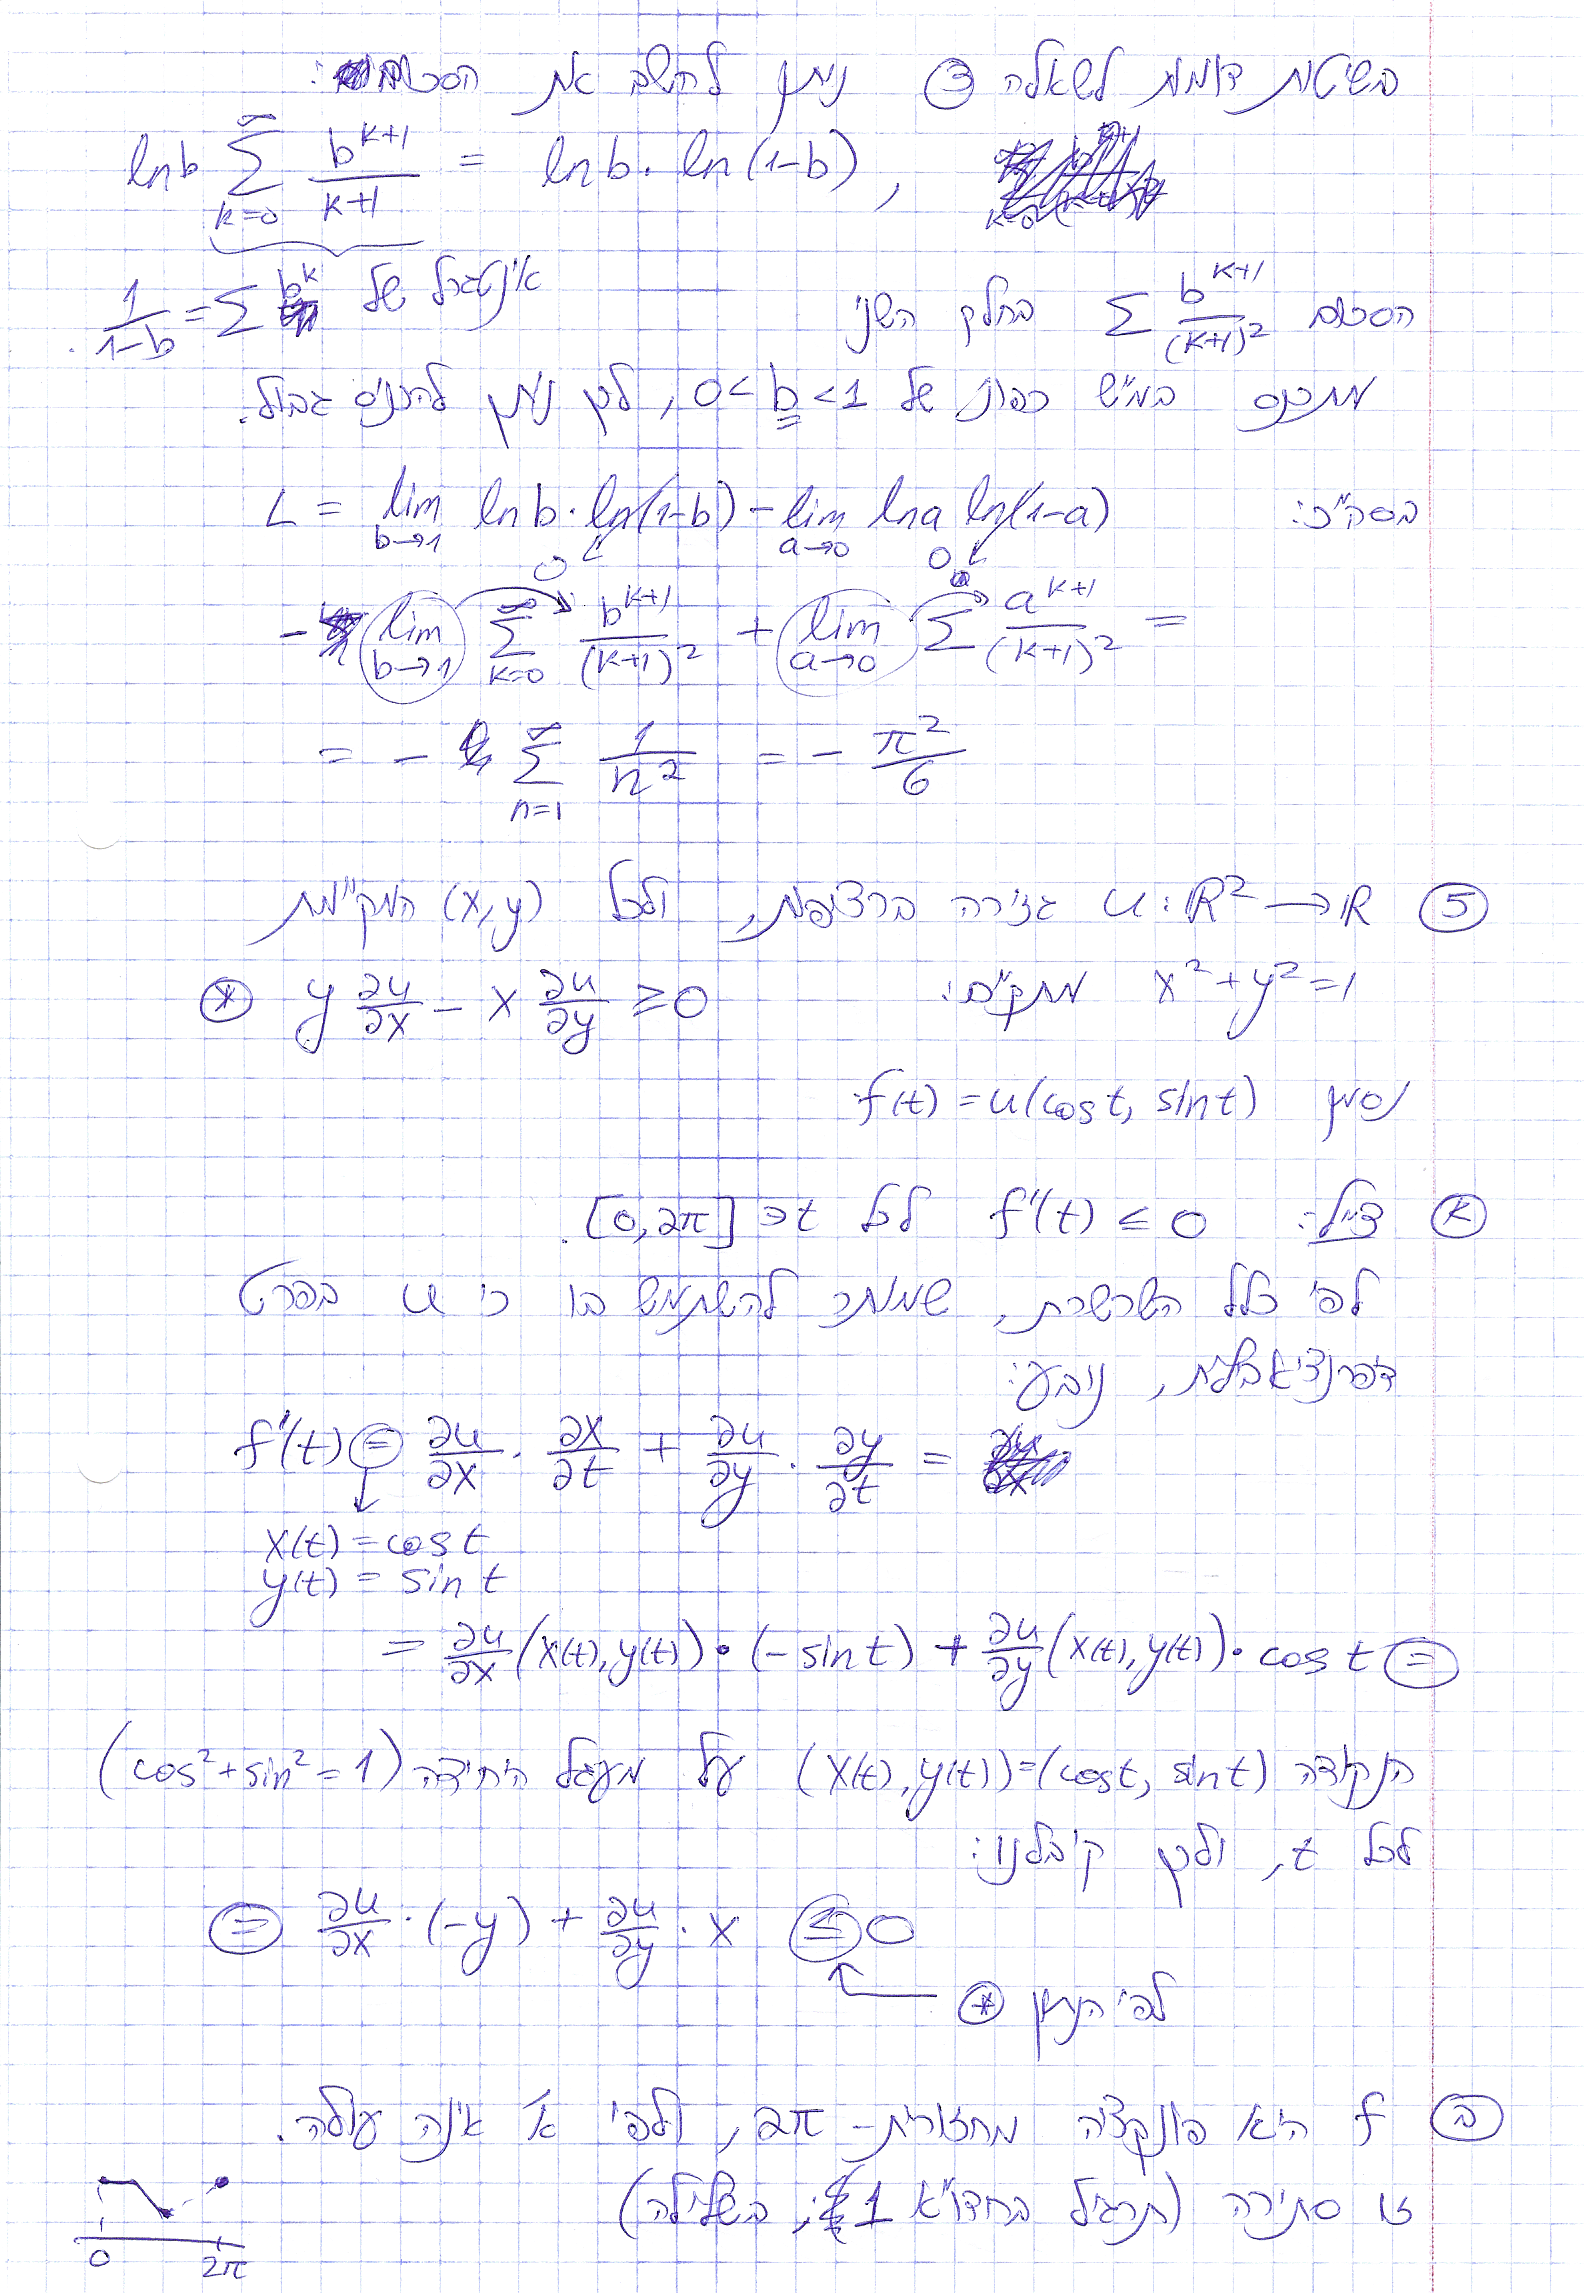 בשיטות דומות לשאלה ③ ניתן לחשב את הסכום:
ln b \sum_{k=0}^{∞} \frac{b^{k+1}}{k+1} = ln b · ln(1-b) ,
\frac{1}{1-b} = Σ b^k אינטגרל של
הסכום Σ \frac{b^{k+1}}{(k+1)^2} בחלק השני
מתכנס במ"ש כפונ' של 0<b<1, לכן ניתן להכניס גבול.
בסה"כ: L = \lim_{b→1} ln b · ln(1-b) - \lim_{a→0} ln a ln(1-a)
0 0
- \lim_{b→1} \sum_{k=0}^{∞} \frac{b^{k+1}}{(k+1)^2} + \lim_{a→0} Σ \frac{a^{k+1}}{(k+1)^2} =
= - \sum_{n=1}^{∞} \frac{1}{n^2} = - \frac{π^2}{6}
⑤ u: ℝ² → ℝ גזירה ברציפות, ולכל (x,y) המקיימת
x²+y²=1 מתקיים: y \frac{∂u}{∂x} - x \frac{∂u}{∂y} ≥ 0 ⊛
נסמן f(t) = u(cos t, sin t)
(א) צ"ל: f'(t) ≤ 0 לכל t∈[0,2π].
לפי כלל השרשרת, שמותר להשתמש בו כי u בפרט
דיפרנציאבילית, נובע:
f'(t) = \frac{∂u}{∂x} · \frac{∂x}{∂t} + \frac{∂u}{∂y} · \frac{∂y}{∂t} =
x(t) = cos t
y(t) = sin t
= \frac{∂u}{∂x}(x(t),y(t)) · (-sin t) + \frac{∂u}{∂y}(x(t),y(t)) · cos t =
הנקודה (x(t),y(t))=(cos t, sin t) על מעגל היחידה (cos²+sin²=1)
לכל t, ולכן קיבלנו:
= \frac{∂u}{∂x} · (-y) + \frac{∂u}{∂y} · x ≤ 0
לפי הנתון ⊛
(ב) f היא פונקציה מחזורית-2π, ולפי א' אינה עולה.
זו סתירה (תרגיל בחדו"א 1, בשלילה)
0 2π